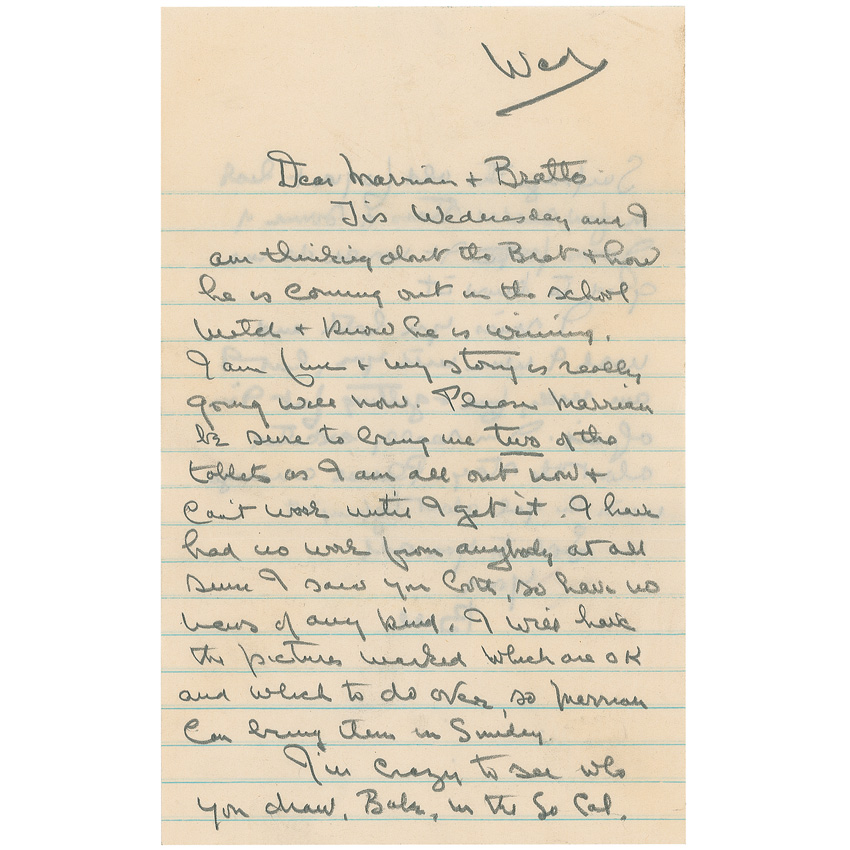 Wed
Dear Marrian + Bratto
Tis Wednesday and I
am thinking about the Brat + how
he is coming out in the school
match + know he is winning.
I am fine + my story is really
going well now. Please Marrian
be sure to bring me two of the
tablets as I am all out now +
Can't work until I get it. I have
had no work from anybody at all
since I saw you both, so have no
news of any kind. I will have
the pictures marked which are OK
and which to do over, so Marrian
Can bring them in Sunday.
I'm crazy to see who
you draw, Babe, in the So Cal.